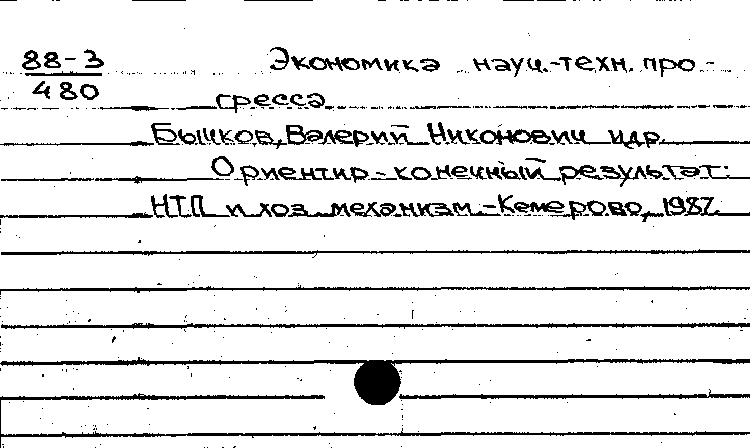 88-3 Экономика науч.-техн. про-
480 гресса
Бычков, Валерий Никонович и др.
Ориентир - конечный результат:
НТП и хоз. механизм.-Кемерово, 1987.